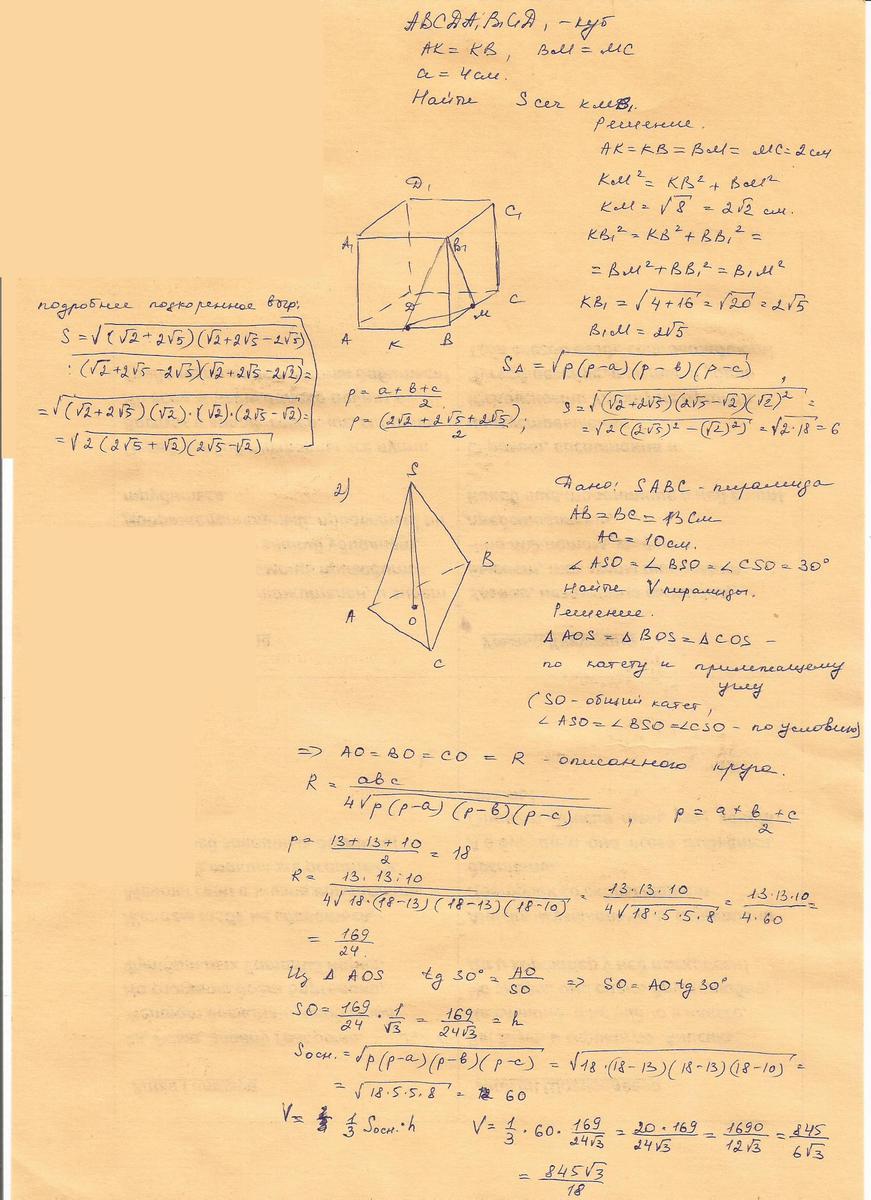 ABCDA₁B₁C₁D₁ - куб
AK = KB, BM = MC
a = 4см.
Найти S сеч KMB₁.
Решение.
AK = KB = BM = MC = 2см
KM² = KB² + BM²
KM = √8 = 2√2 см.
KB₁² = KB² + BB₁² =
= BM² + BB₁² = B₁M²
KB₁ = √(4+16) = √20 = 2√5
B₁M = 2√5
S△ = √(p(p-a)(p-в)(p-c)),
D₁
C₁
A₁
B₁
D
C
M
A
K
B
p = (a+в+c)/2
p = (2√2 + 2√5 + 2√5)/2,
S = √((√2+2√5)(2√5-√2)(√2)²) =
= √(2((2√5)² - (√2)²)) = √(2·18) = 6
подробнее подкоренное выр:
S = √((√2+2√5)(√2+2√5-2√5)
·(√2+2√5-2√5)(√2+2√5-2√2)) =
= √((√2+2√5)(√2)·(√2)·(2√5-√2)) =
= √(2(2√5+√2)(2√5-√2))
2)
S
B
A
O
C
Дано: SABC - пирамида
AB = BC = 13см
AC = 10см.
∠ASO = ∠BSO = ∠CSO = 30°
Найти V пирамиды.
Решение.
△AOS = △BOS = △COS -
по катету и прилежащему
углу
(SO - общий катет,
∠ASO = ∠BSO = ∠CSO - по условию)
=> AO = BO = CO = R - описанного круга.
R = aвc/(4√(p(p-a)(p-в)(p-c))), p = (a+в+c)/2
p = (13+13+10)/2 = 18
R = 13·13·10/(4√(18·(18-13)(18-13)(18-10))) = 13·13·10/(4√(18·5·5·8)) = 13·13·10/(4·60) =
= 169/24.
Из △AOS tg 30° = AO/SO => SO = AO tg 30°
SO = 169/24 · 1/√3 = 169/(24√3) = h
Sосн. = √(p(p-a)(p-в)(p-c)) = √(18·(18-13)(18-13)(18-10)) =
= √(18·5·5·8) = 60
V = 1/3 Sосн·h V = 1/3 · 60 · 169/(24√3) = 20·169/(24√3) = 1690/(12√3) = 845/(6√3)
= 845√3/18